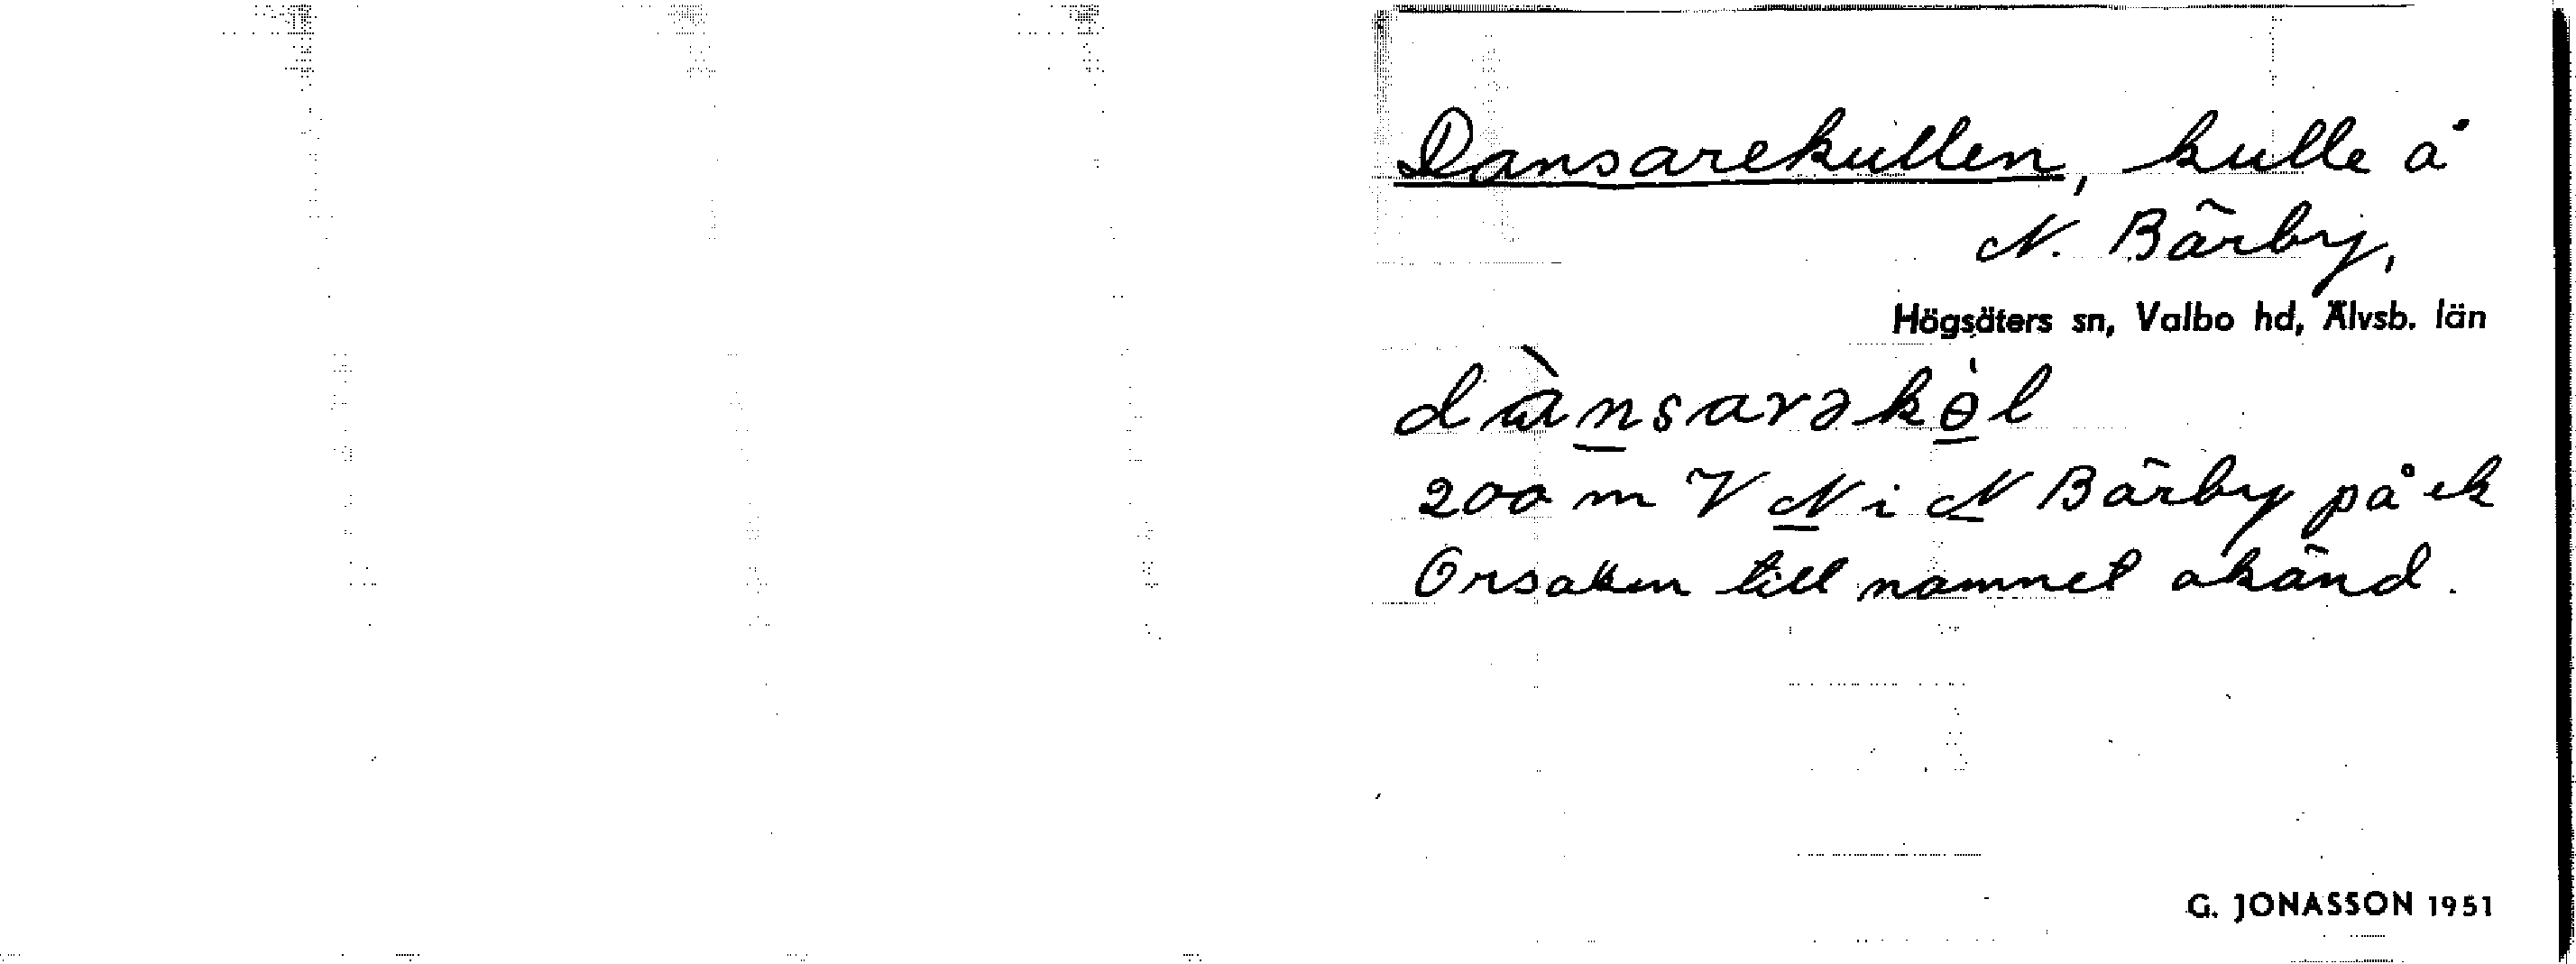 Dansarekullen, kulle å
N. Bärby,
Högsäters sn, Valbo hd, Älvsb. län
dànsarəkө̀l
200 m V N i N Bärby på ek
Orsaken till namnet okänd.
G. JONASSON 1951